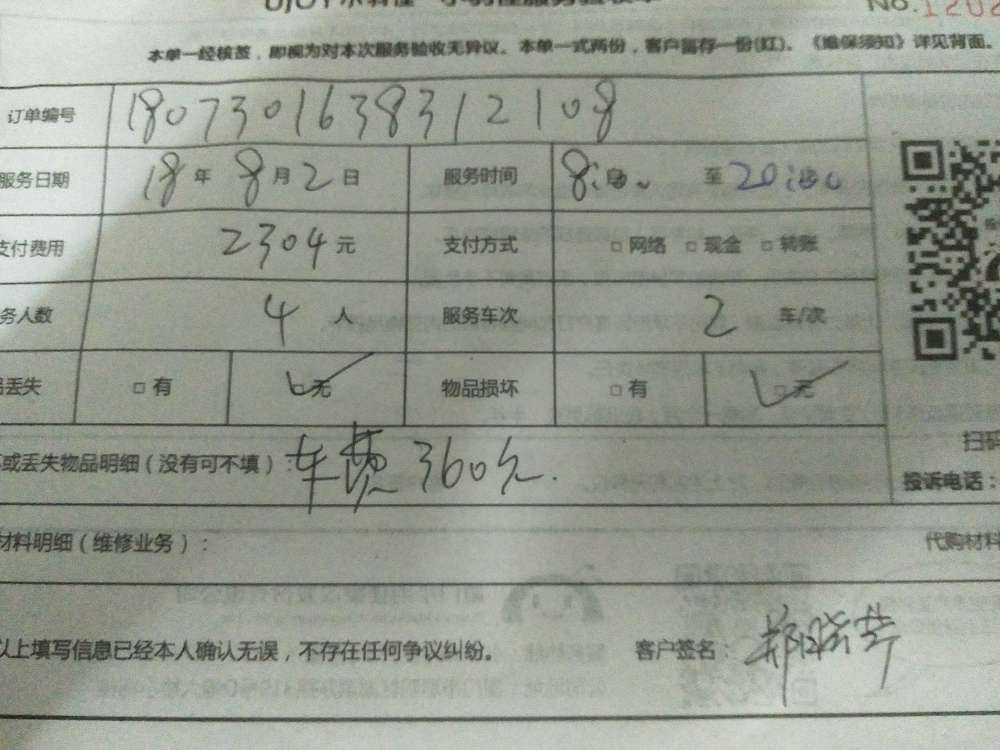 No.1202
本单一经核签，即视为对本次服务验收无异议。本单一式两份，客户留存一份(红)。《担保须知》详见背面。
订单编号 1807301638312108
服务日期 18年8月2日 服务时间 8:00 至 20:00
支付费用 2304元 支付方式 □网络 □现金 □转账
务人数 4 人 服务车次 2 车/次
丢失 □有 □无 物品损坏 □有 □无
或丢失物品明细（没有可不填）：车费360元.
扫码
投诉电话：
材料明细（维修业务）： 代购材料
以上填写信息已经本人确认无误，不存在任何争议纠纷。 客户签名：郑晓华